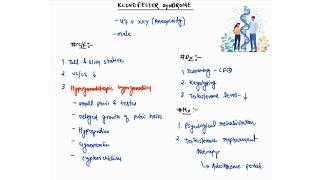 KLINEFELTER SYNDROME
- 47 + XXY (Aneuploidy)
- male
# C/F :-
1. Tall & slim stature
2. US/LS ↓
3. Hypergonadotropic hypogonadism
- small penis & testes
- Delayed growth of pubic hairs
- Hypospadias
- Gynecomastia
- Cryptorchidism
# Dx :-
1. Screening -
2. Karyotyping
3. Testosterone level - ↓
# Mx :-
1. Psycological rehabilitation
2. Testosterone replacement
therapy
↳ Adolescence period.